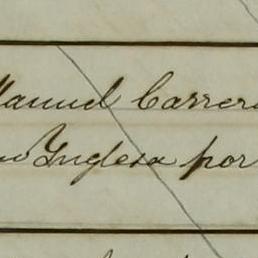 Manuel Carrera
Inglesa por